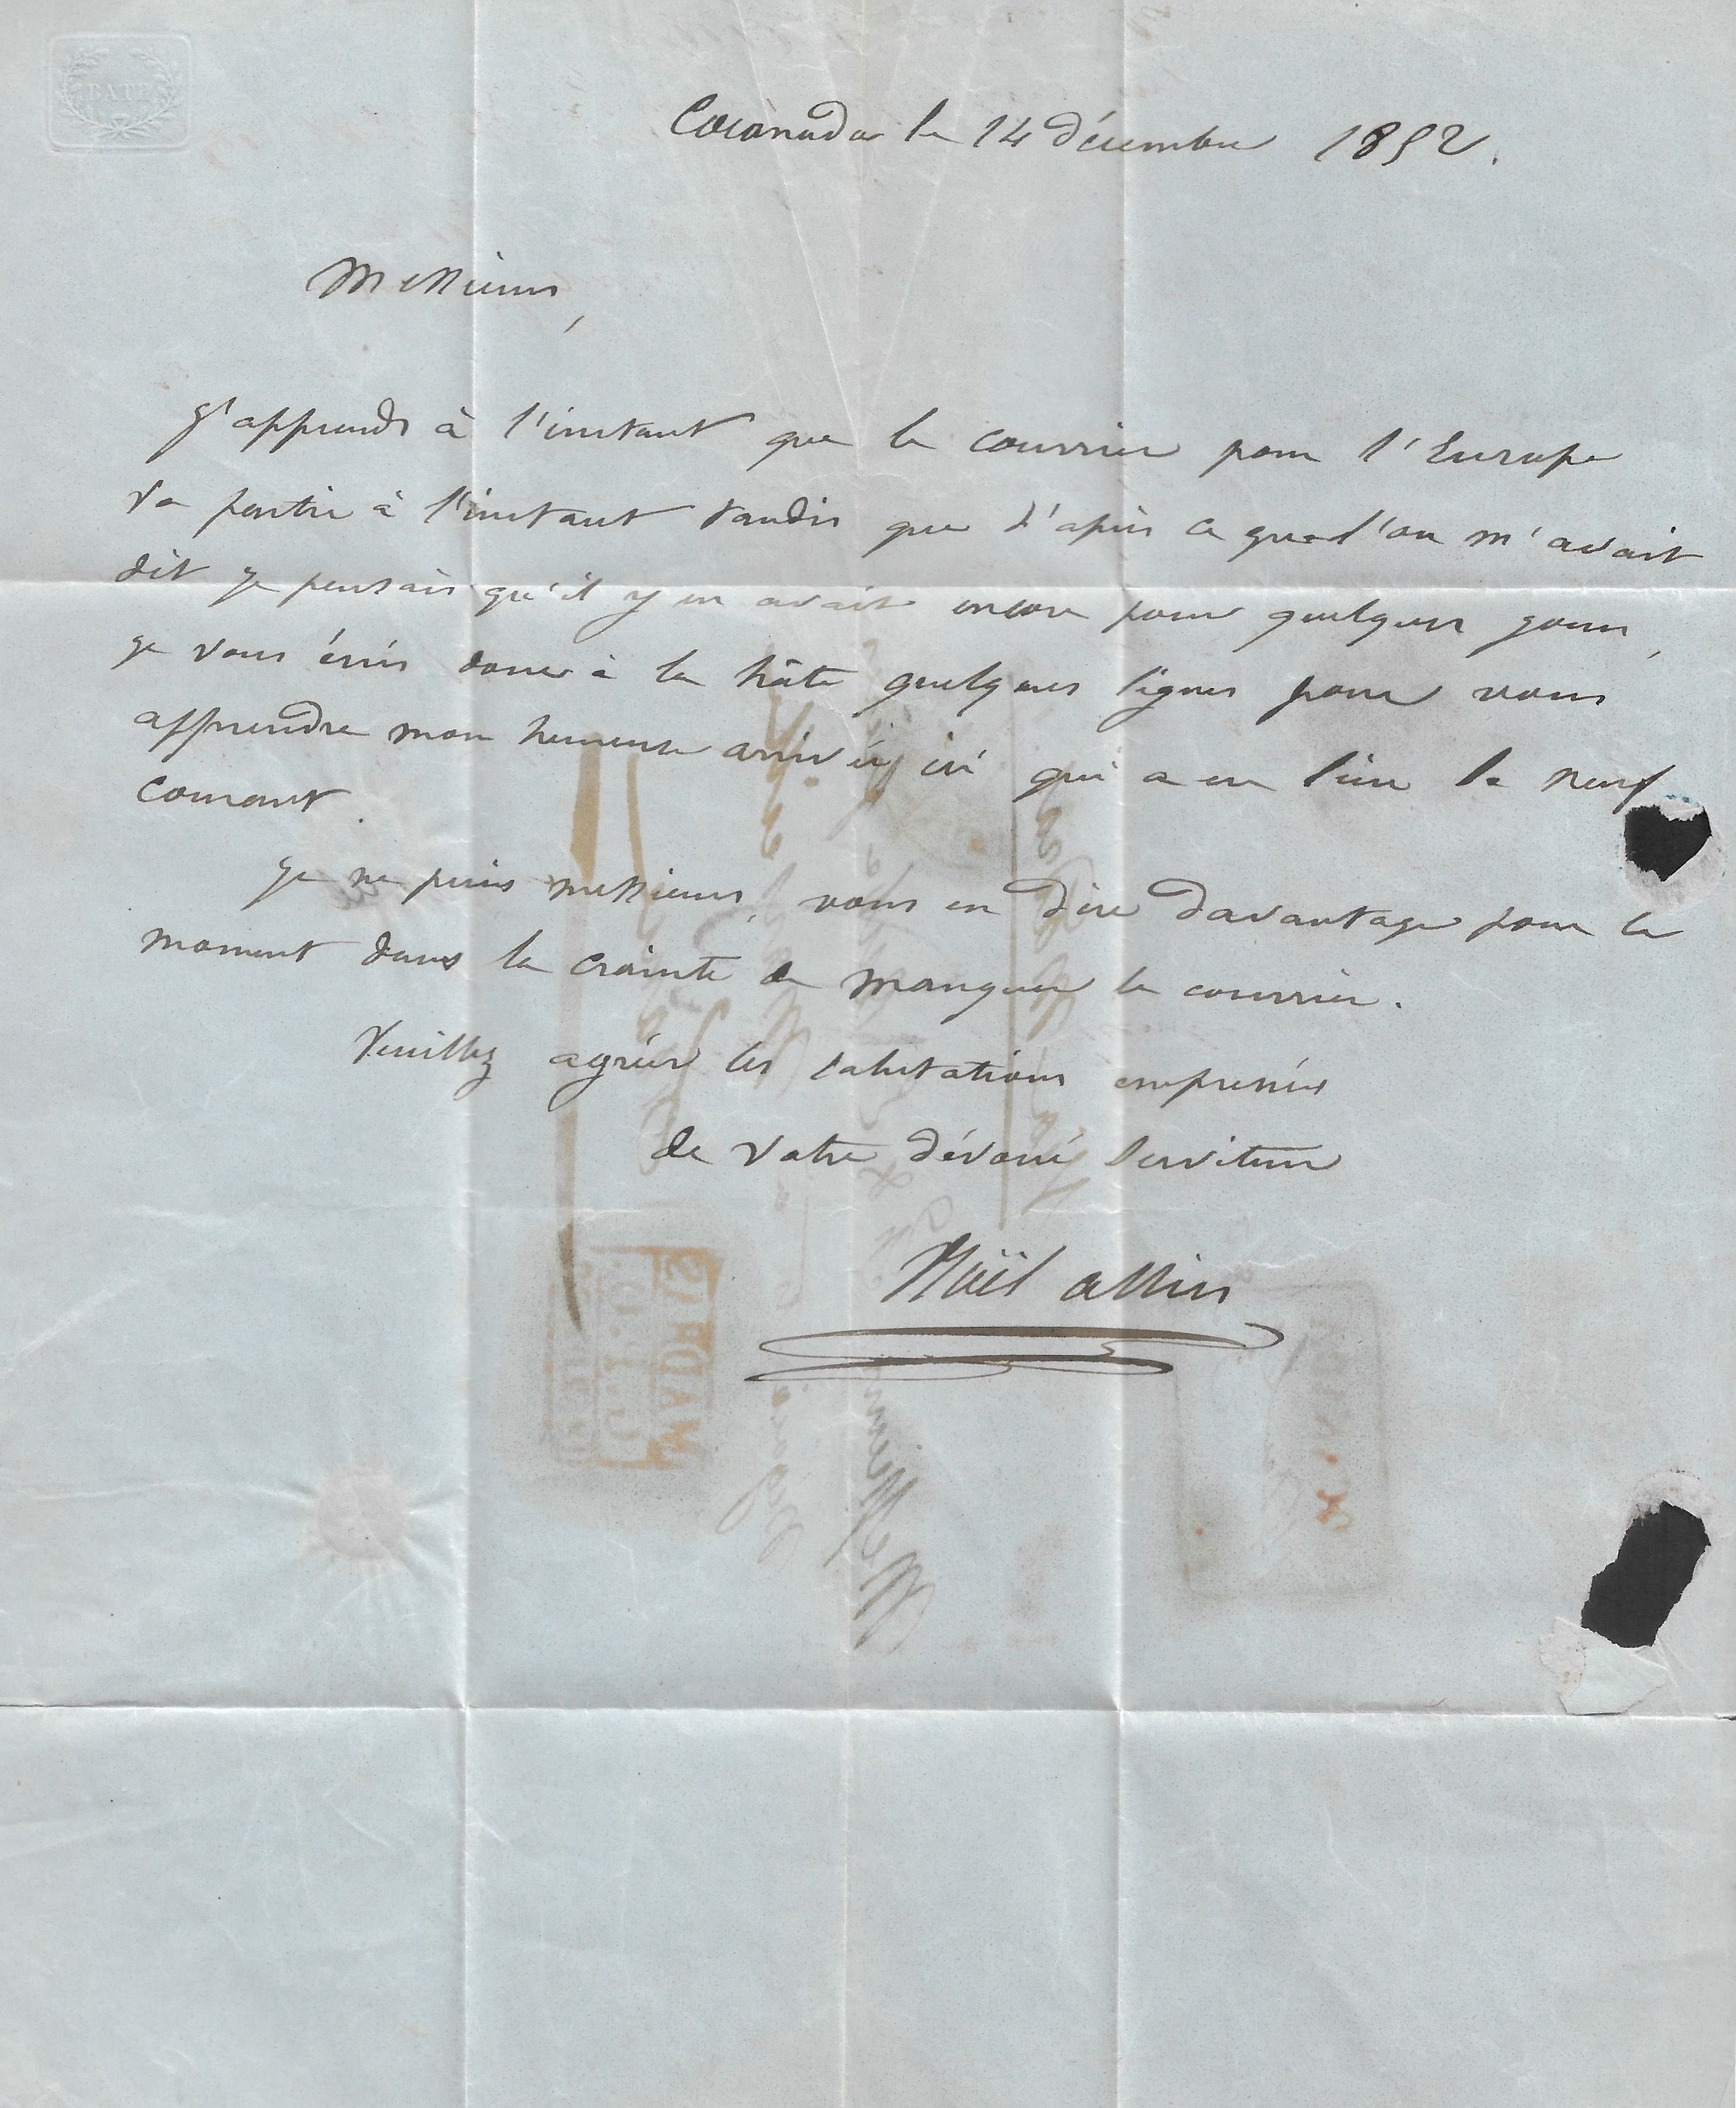 BATH
Cocanada le 14 décembre 1852.
Messieurs,
J'apprends à l'instant que le courrier pour l'Europe
va partir à l'instant tandis que d'après ce que l'on m'avait
dit je pensais qu'il y en avait encore pour quelques jours,
je vous écris donc à la hâte quelques lignes pour vous
apprendre mon heureuse arrivée ici qui a eu lieu le neuf
courant.
Je ne puis messieurs, vous en dire davantage pour le
moment dans la crainte de manquer le courrier.
Veuillez agréer les salutations empressées
de votre dévoué serviteur
Noël